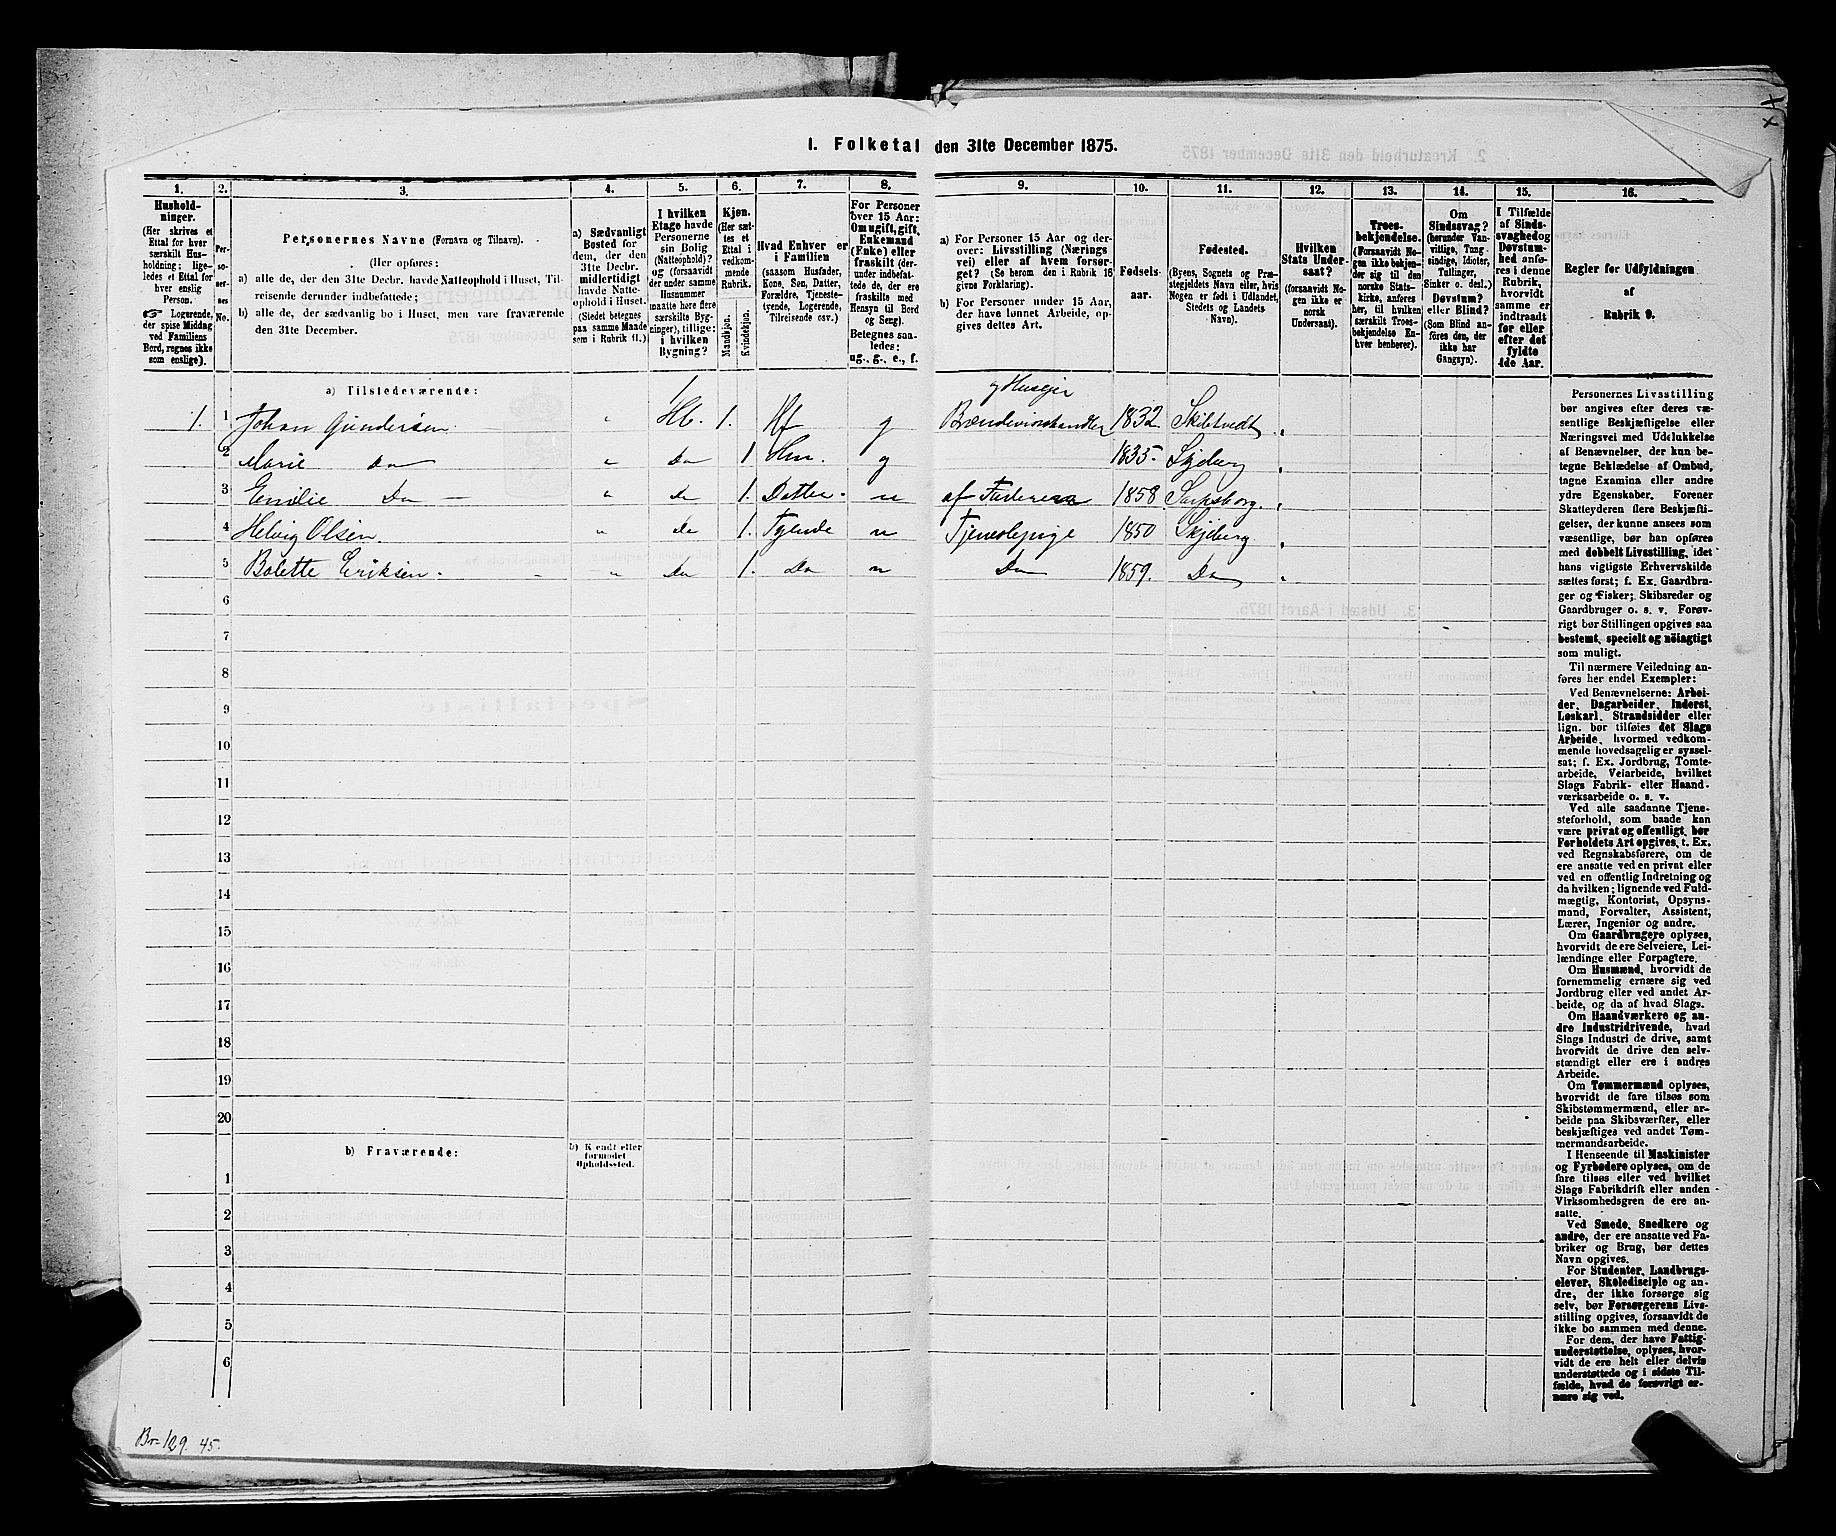 1. Folketal den 31te December 1875.
1. 2. 3. 4. 5. 6. 7. 8. 9. 10. 11. 12. 13. 14. 15. 16.
Hushold-
ninger.
(Her skrives et
Ettal for hver
særskilt Hus-
holdning; lige-
ledes et Ettal for
hver enslig
Person.
☞ Logerende,
der spise Middag
ved Familiens
Bord, regnes ikke
som enslige).
Per-
so-
ner-
nes
No.
Personernes Navne (Fornavn og Tilnavn).
(Her opføres:
a) alle de, der den 31te Decbr. havde Natteophold i Huset, Til-
reisende derunder indbefattede;
b) alle de, der sædvanlig bo i Huset, men vare fraværende
den 31te December.
a) Sædvanligt
Bosted for
dem, der den
31te Decbr.
midlertidigt
havde Natte-
ophold i Huset.
(Stedet betegnes
paa samme Maade
som i Rubrik 11.)
I hvilken
Etage havde
Personerne
sin Bolig
(Natteophold)?
og (forsaavidt
der under samme
Husnummer
maatte høre flere
særskilte Byg-
ninger), tillige:
i hvilken
Bygning?
Kjøn.
(Her sæt-
tes et
Ettal i
vedkom-
mende
Rubrik.
Mandkjøn.
Kvindekjøn.
Hvad Enhver er
i Familien
(saasom Husfader,
Kone, Søn, Datter,
Forældre, Tjeneste-
tyende, Logerende,
Tilreisende osv.)
For Personer
over 15 Aar:
Om ugift, gift,
Enkemand
(Enke) eller
fraskilt (der-
under indbefat-
tede de, der ere
fraskilte med
Hensyn til Bord
og Seng).
Betegnes saa-
ledes:
ug., g., e., f.
a) For Personer 15 Aar og der-
over: Livsstilling (Nærings-
vei) eller af hvem forsør-
get? (Se herom den i Rubrik 16
givne Forklaring).
b) For Personer under 15 Aar,
der have lønnet Arbeide, op-
gives dettes Art.
Fødsels-
aar.
Fødested.
(Byens, Sognets og Præ-
stegjeldets Navn eller, hvis
Nogen er født i Udlandet,
Stedets og Landets
Navn).
Hvilken
Stats Under-
saat?
(forsaavidt No-
gen ikke er
norsk
Undersaat).
Troes-
bekjendelse.
(Forsaavidt No-
gen ikke bekjen-
der sig til den
norske Stats-
kirke, anføres
her, til hvilken
særskilt Troes-
bekjendelse En-
hver henhører).
Om
Sindssvag?
(herunder Van-
vittige, Tung-
sindige, Idioter,
Tullinger,
Sinker o. desl.)
Døvstum?
eller Blind?
(Som Blind an-
føres den, der
ikke har
Gangsyn).
I Tilfælde
af Sinds-
svaghed og
Døvstum-
hed anfø-
res i denne
Rubrik,
hvorvidt
samme er
indtraadt
før eller
efter det
fyldte
4de Aar.
Regler for Udfyldningen
af
Rubrik 9.
a) Tilstedeværende:
1. 1 Johan Gundersen „ 1 Hb. 1. Hf g Brændevinshandler og Husejer 1832 Skibtvedt „
2 Marie Do „ Do 1 Hm. g 1835 Skjeberg „
3 Emilie Do — „ Do 1. Datter u af Faderen 1858 Sarpsborg. „
4 Helvig Olsen. „ Do 1. Tyende u Tjenestepige 1850 Skjeberg „
5 Bolette Eriksen. - „ Do 1. Do u Do 1859. Do „
6
7
8
9
10
11
12
13
14
15
16
17
18
19
20
b) Fraværende:
b) Kjendt eller
formodet
Opholdssted.
1
2
3
4
5
6
Personernes Livsstilling
bør angives efter deres væ-
sentlige Beskjæftigelse eller
Næringsvei med Udelukkelse
af Benævnelser, der kun be-
tegne Beklædelse af Ombud,
tagne Examina eller andre
ydre Egenskaber. Forener
Skatteyderen flere Beskjæfti-
gelser, der kunne ansees som
væsentlige, bør han opføres
med dobbelt Livsstilling, idet
hans vigtigste Erhvervskilde
sættes først; f. Ex. Gaardbru-
ger og Fisker; Skibsreder og
Gaardbruger o. s. v. Forøv-
rigt bør Stillingen opgives saa
bestemt, specielt og nöiagtigt
som muligt.
Til nærmere Veiledning an-
føres her endel Exempler:
Ved Benævnelserne: Arbei-
der, Dagarbeider, Inderst,
Løskarl, Strandsidder eller
lign. bør tilføies det Slags
Arbeide, hvormed vedkom-
mende hovedsagelig er syssel-
sat; f. Ex. Jordbrug, Tomte-
arbeide, Veiarbeide, hvilket
Slags Fabrik- eller Haand-
værksarbeide o. s. v.
Ved alle saadanne Tjene-
steforhold, som baade kan
være privat og offentligt, bør
Forholdets Art opgives, t. Ex.
ved Regnskabsførere, om de
ere ansatte ved en privat eller
ved en offentlig Indretning og
da hvilken; lignende ved Fuld-
mægtig, Kontorist, Opsyns-
mand, Forvalter, Assistent,
Lærer, Ingeniør og andre.
Om Gaardbrugere oplyses,
hvorvidt de ere Selveiere, Lei-
lændinge eller Forpagtere.
Om Husmænd, hvorvidt de
fornemmelig ernære sig ved
Jordbrug eller ved andet Ar-
beide, og da af hvad Slags.
Om Haandværkere og an-
dre Industridrivende, hvad
Slags Industri de drive, samt
hvorvidt de drive den selv-
stændigt eller ere i andres
Arbeide.
Om Tømmermænd oplyses,
hvorvidt de fare tilsøs som
Skibstømmermænd, eller ar-
beide paa Skibsværfter, eller
beskjæftiges ved andet Tøm-
mermandsarbeide.
I Henseende til Maskinister
og Fyrbødere oplyses, om de
fare tilsøs eller ved hvilket
Slags Fabrikdrift eller anden
Virksomhedsgren de ere an-
satte.
Ved Smede, Snedkere og
andre, der ere ansatte ved Fa-
briker og Brug, bør dettes
Navn opgives.
For Studenter, Landbrugs-
elever, Skoledisciple og an-
dre, der ikke forsørge sig
selv, bør Forsørgerens Livs-
stilling opgives, forsaavidt de
ikke bo sammen med denne.
For dem, der have Fattig-
understøttelse, oplyses, hvor-
vidt de ere helt eller delvis
understøttede og i sidste Til-
fælde, hvad de forøvrigt er-
nære sig ved.
Br= 129. 45.